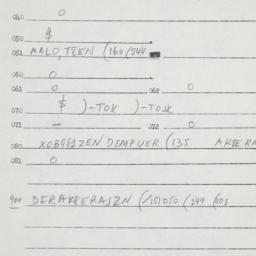 040 0
050 $
051 MALO, TSEN (160 (244
060 0
061 0 062 0
070 $ )-TOK )-TOK
071 — 072 0
080 XOBGPSZEN DEMPUER (135 AKPERA
081 0
900 DERAKPERAJZN (/151050 (249 (403